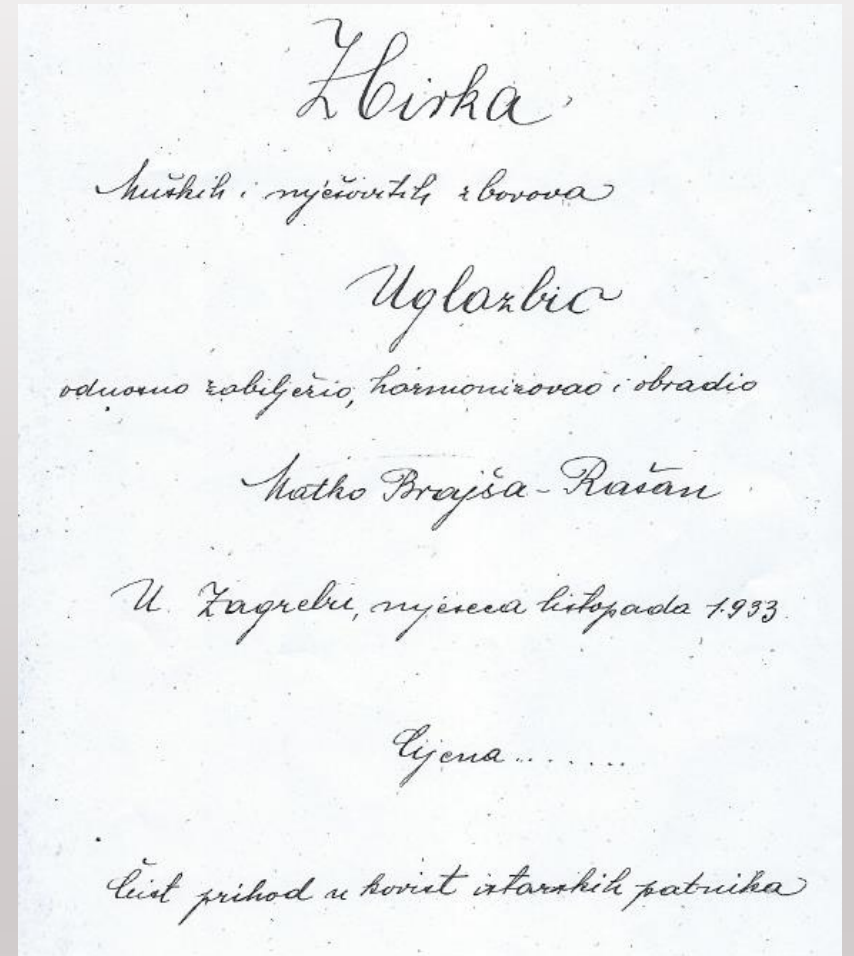 Zbirka
Muških i mješovitih zborova
Uglazbio
odnosno zabilježio, harmonizovao i obradio
Matko Brajša-Rašan
U Zagrebu, mjeseca listopada 1933.
Cijena .......
Čist prihod u korist istarskih patnika